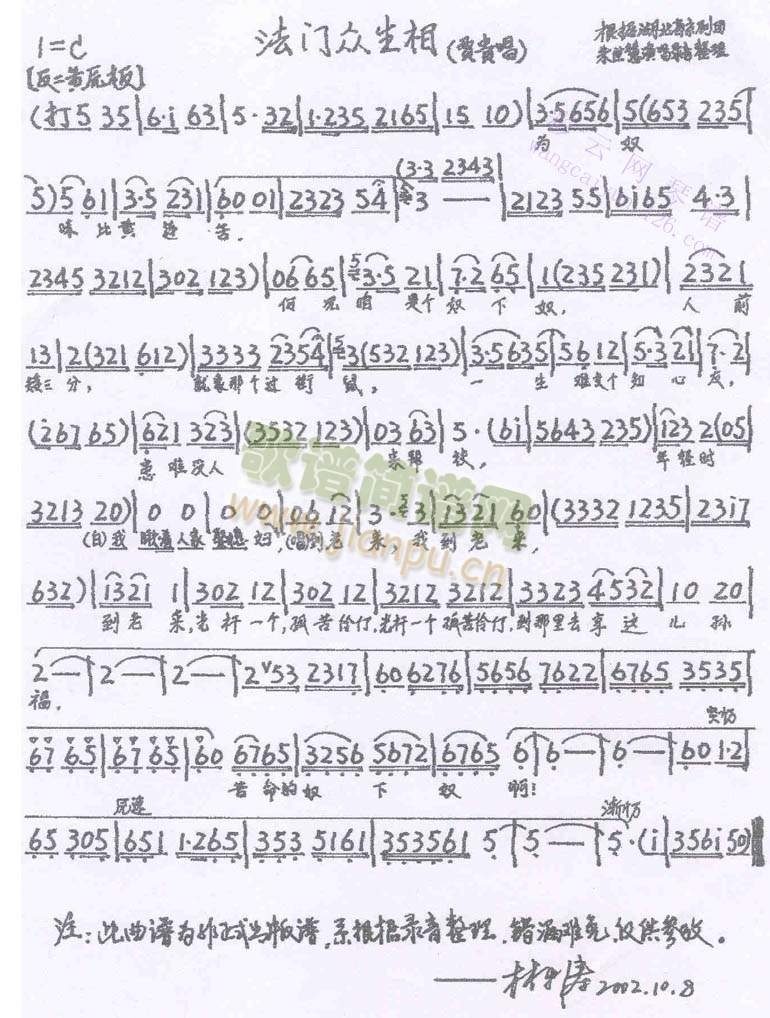 法门众生相(贾贵唱)
根据湖北省京剧团
朱世慧演唱录音整理
1=C
[反二黄原板]
(打5 35|6·i 63|5·32|1·235 2165|15 10)|3·5656|5(653 235|
为 奴
5)5 61|3·5 231|60 01|2323 54|3 — |2123 55|6i65 4·3|
(3·3 2343|
味 比黄 连 苦.
2345 3212|302 123)|06 65|3·5 21|7·2 65|1(235 231)|2321
但凡 咱 是个 奴 下 奴, 人 前
13|2(321 612)|3333 2354|3(532 123)|3·5635|56 12|5·3 21|7·2
矮三分, 就象那个过街 鼠, 一 生 难交个知心友,
(2676 65)|621 323|(3532 123)|03 63|5·(6i|5643 235)|i23 2(05|
患难没人 来帮 扶, 年轻时
3213 20)|0 0|0 0|06 12|3· 3|1321 60|(3332 1235|2317
(白)我 妇,(唱)到老 来,我到老 来,
632)|1321 1|302 12|302 12|3212 3212|3323 4532|10 20|
到老 来,光杆一个,孤苦伶仃,光杆一个孤苦伶仃,到那里去享这儿孙
2—|2—|2—|2ˇ53 2317|60 6276|5656 7622|6765 3535|
福,
突慢
67 65|67 65|60 6765|3256 5672|6765 6|6—|6—|60 1·2|
苦命的奴 下 奴 啊!
尾速 渐慢
65 305|651 1·265|353 5161|353561 5|5—|5·(i|356i 50)‖
注:此曲谱为非正式出版谱,系根据录音整理,错漏难免,仅供参改。
2002.10.8
歌谱简谱网
www.jianpu.cn